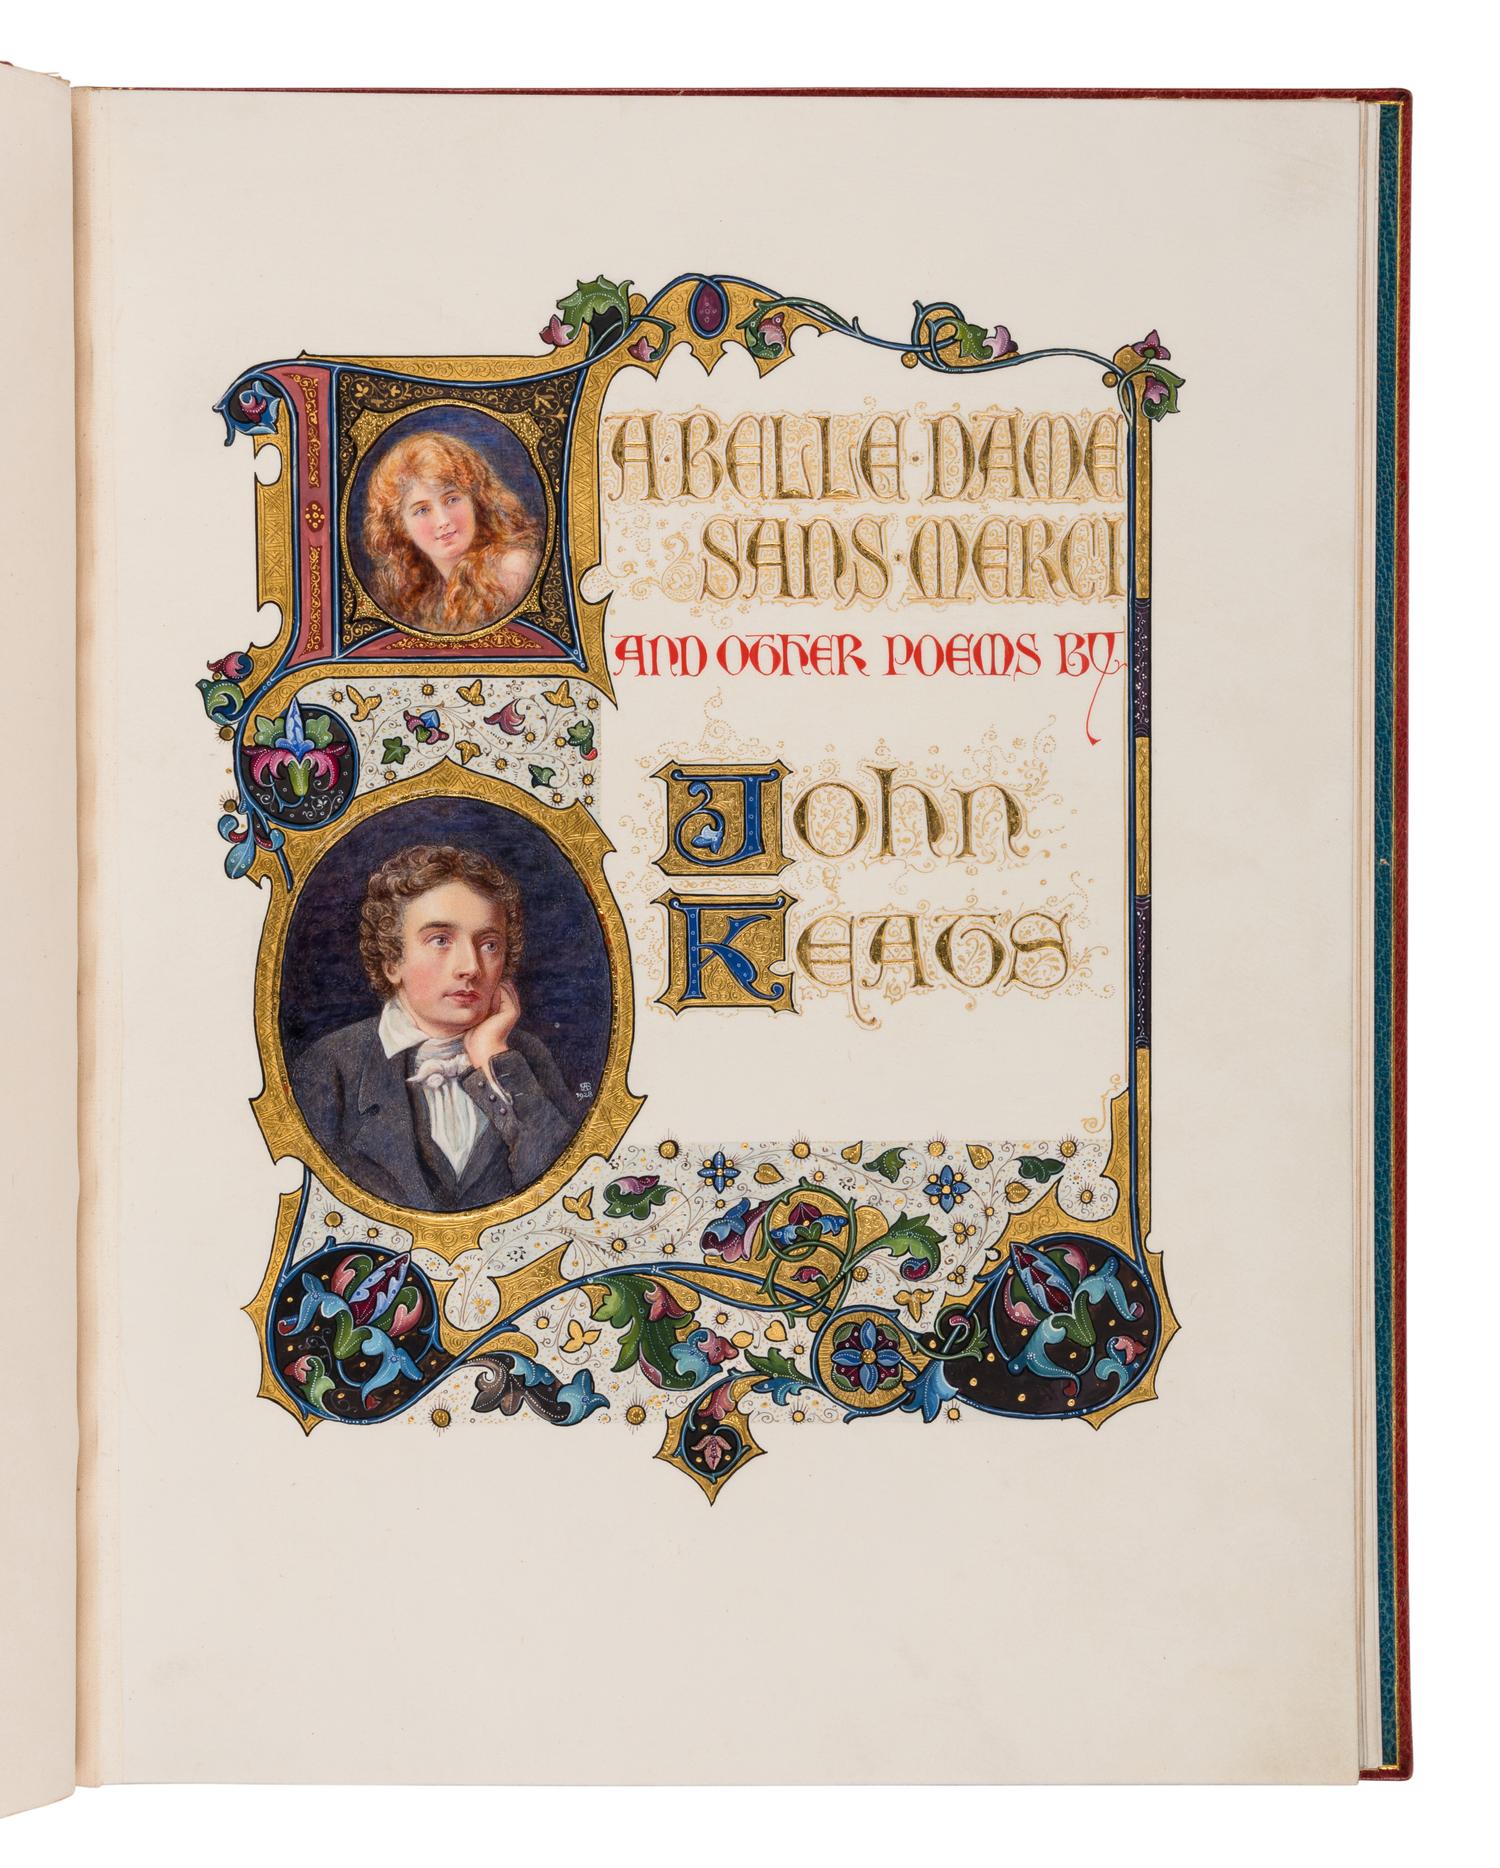 LA·BELLE·DAME
SANS·MERCI
AND OTHER POEMS BY
John
KEATS
1928